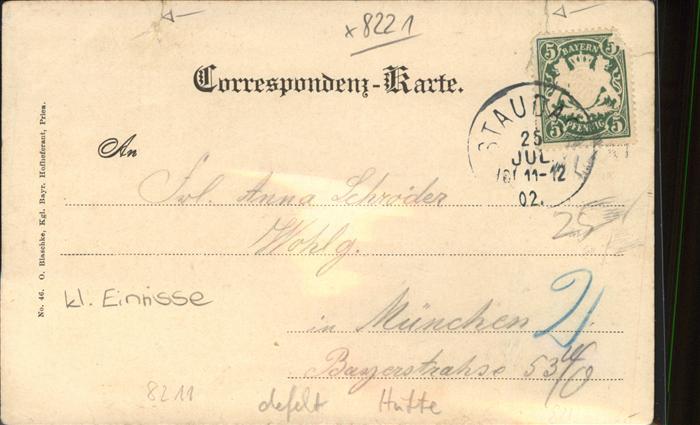 x8221
Correspondenz-Karte.
5 BAYERN 5
5 PFENNIG 5
STAUDA
25
JUL
11-12
02.
An
Frl. Anna Schröder
Wohlg.
in München
Bayerstrahse 53
kl. Einrisse
8211
defekt Hütte
No. 46. O. Blaschke, Kgl. Bayr. Hoflieferant, Prien.